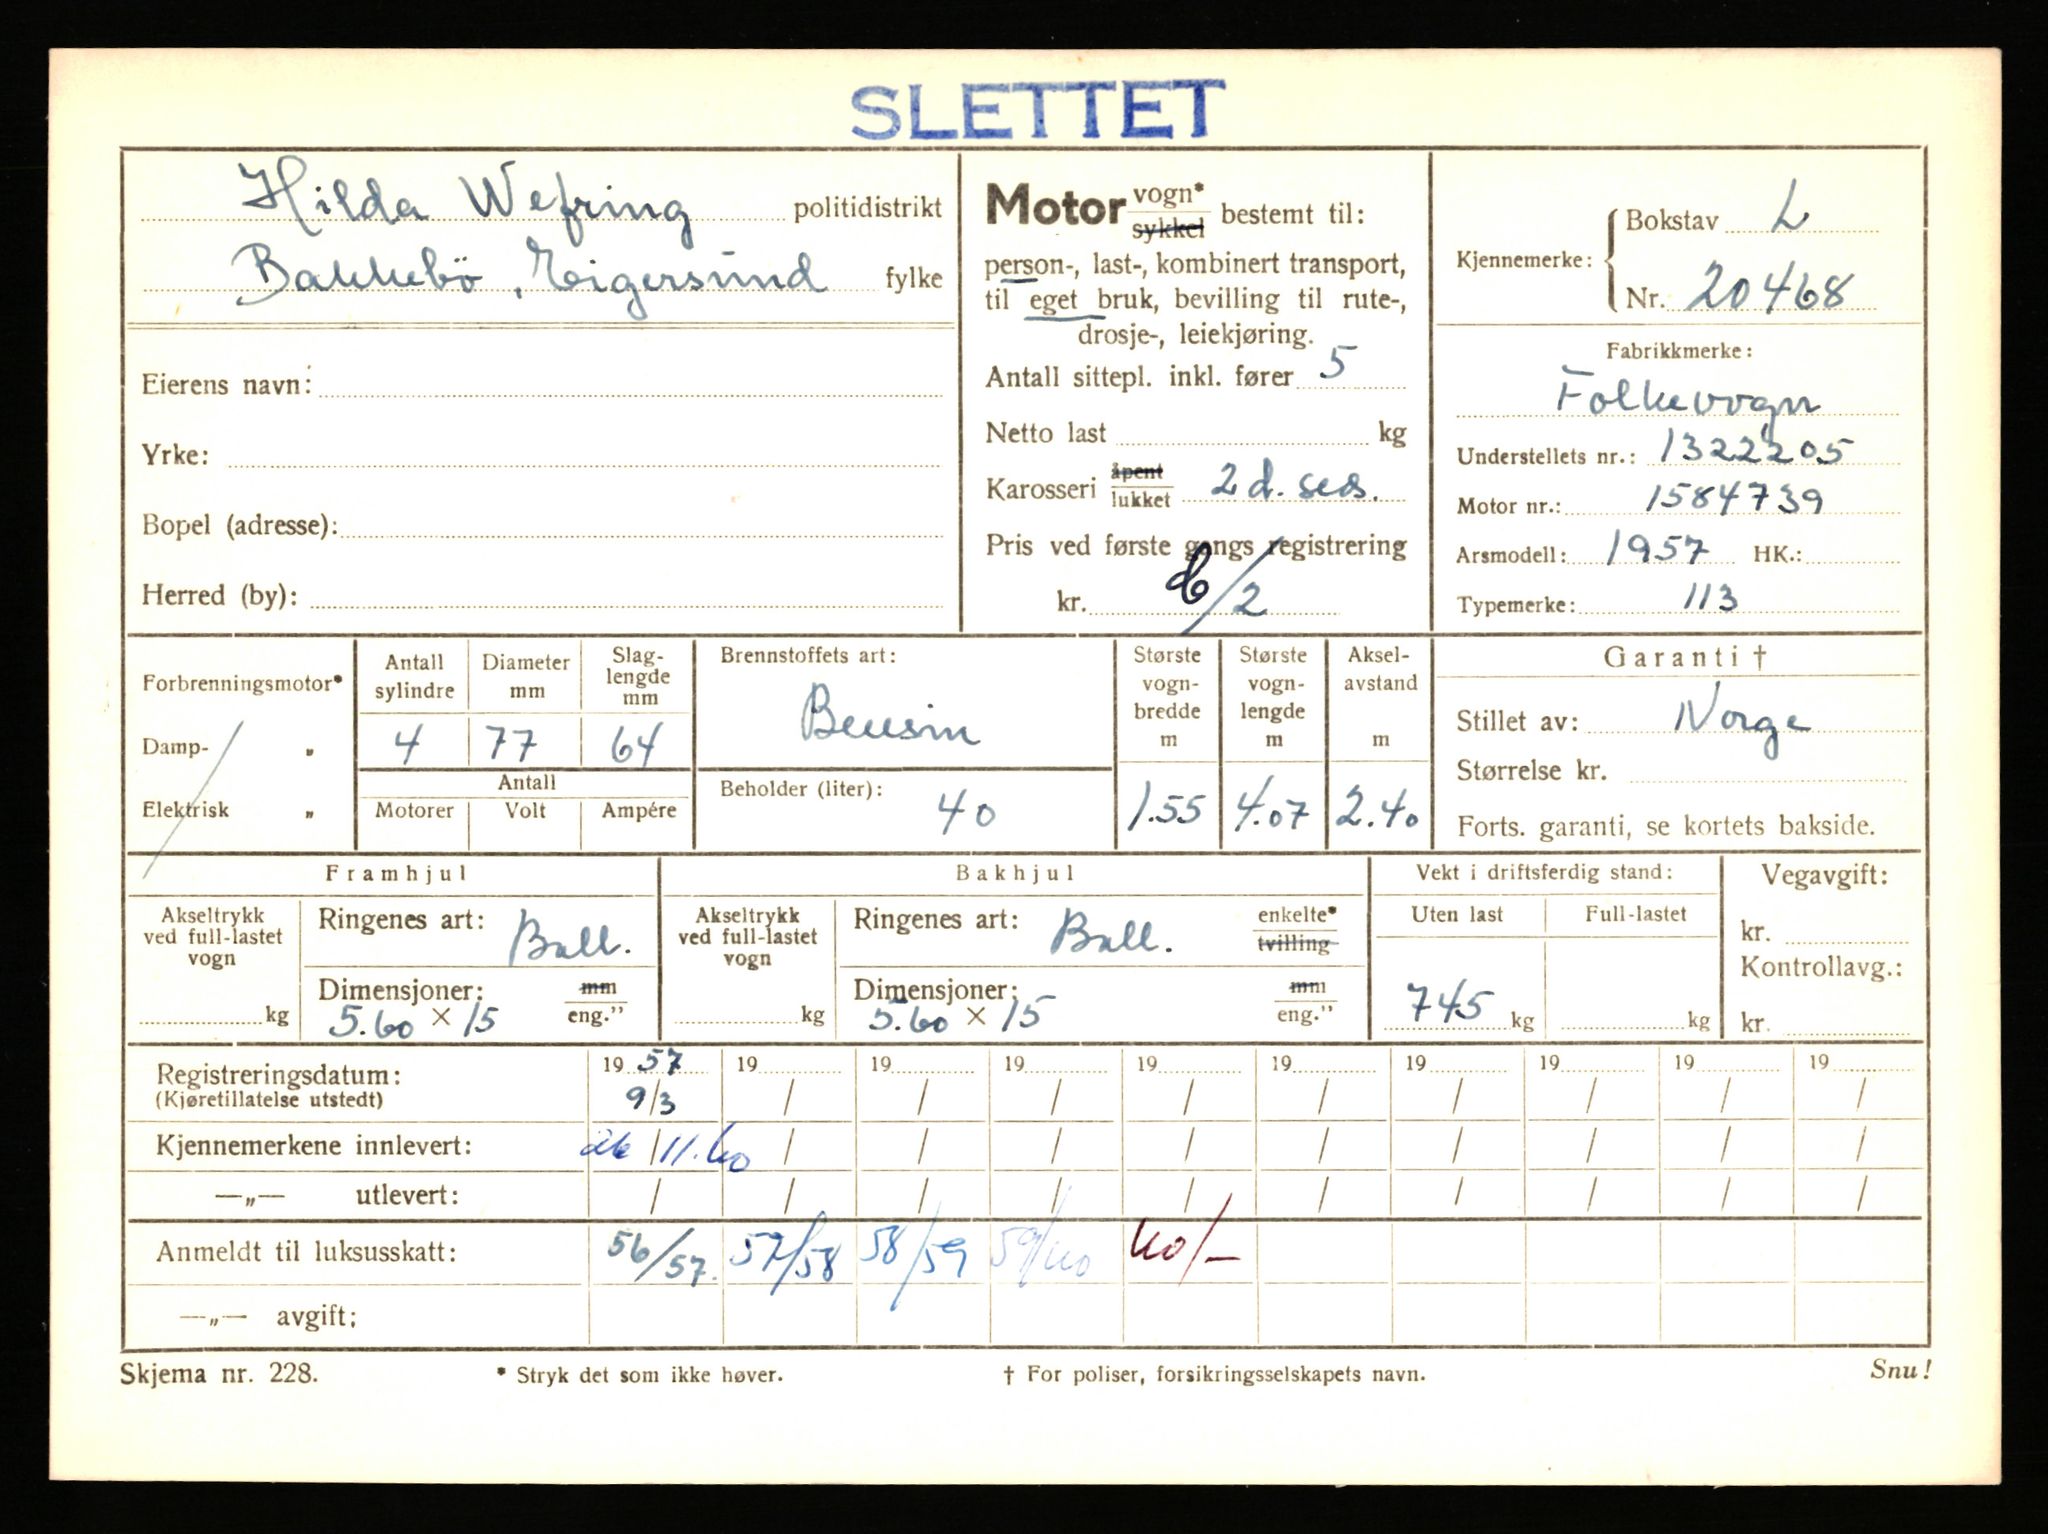 SLETTET
Hilda Wefring politidistrikt
Bakkebö, Eigersund fylke
Eierens navn:
Yrke:
Bopel (adresse):
Herred (by):
Motor vogn* sykkel bestemt til:
person-, last-, kombinert transport,
til eget bruk, bevilling til rute-,
drosje-, leiekjøring.
Antall sittepl. inkl. fører 5
Netto last kg
Karosseri åpent lukket 2 d. sed.
Pris ved første gangs registrering
kr. /2
Kjennemerke: Bokstav L
Nr. 20468
Fabrikkmerke:
Folkevogn
Understellets nr.: 1322205
Motor nr.: 1584739
Arsmodell: 1957 HK.:
Typemerke: 113
Forbrenningsmotor*
Damp- „
Elektrisk „
Antall sylindre 4
Diameter mm 77
Slag-
lengde
mm 64
Antall
Motorer Volt Ampére
Brennstoffets art:
Bensin
Beholder (liter):
40
Største
vogn-
bredde
m
1.55
Største
vogn-
lengde
m
4.07
Aksel-
avstand
m
2.40
Garanti †
Stillet av: Norge
Størrelse kr.
Forts. garanti, se kortets bakside.
Framhjul
Akseltrykk
ved full-lastet
vogn
kg
Ringenes art: Ball.
Dimensjoner: mm
5.60 × 15 eng."
Bakhjul
Akseltrykk
ved full-lastet
vogn
kg
Ringenes art: Ball. enkelte* tvilling
Dimensjoner: mm
5.60 × 15 eng."
Vekt i driftsferdig stand:
Uten last Full-lastet
745 kg kg
Vegavgift:
kr.
Kontrollavg.:
kr.
Registreringsdatum: 19 57 19 19 19 19 19 19 19 19 19
(Kjøretillatelse utstedt) 9/3 / / / / / / / / /
Kjennemerkene innlevert: / 11.60 / / / / / / / / /
—„— utlevert: / / / / / / / / / /
Anmeldt til luksusskatt: 56/57. 57/58 58/59 59/60 60/-
—„— avgift:
Skjema nr. 228. * Stryk det som ikke høver. † For poliser, forsikringsselskapets navn. Snu!